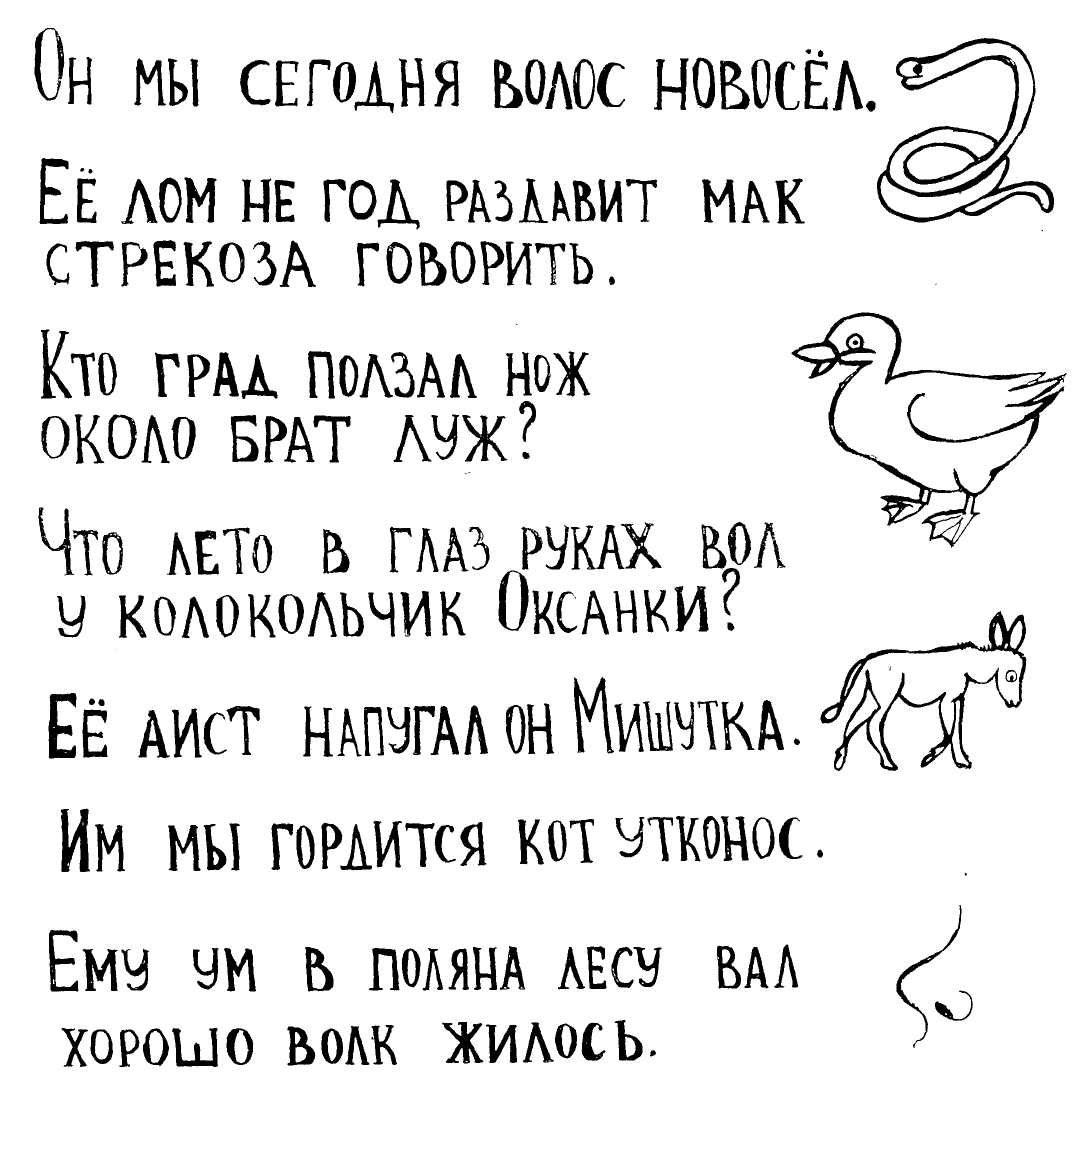 Он мы сегодня волос новосёл.
Её лом не год раздавит мак
стрекоза говорить.
Кто град ползал нож
около брат луж?
Что лето в глаз руках вол
у колокольчик Оксанки?
Её аист напугал он Мишутка.
Им мы гордится кот утконос.
Ему ум в поляна лесу вал
хорошо волк жилось.